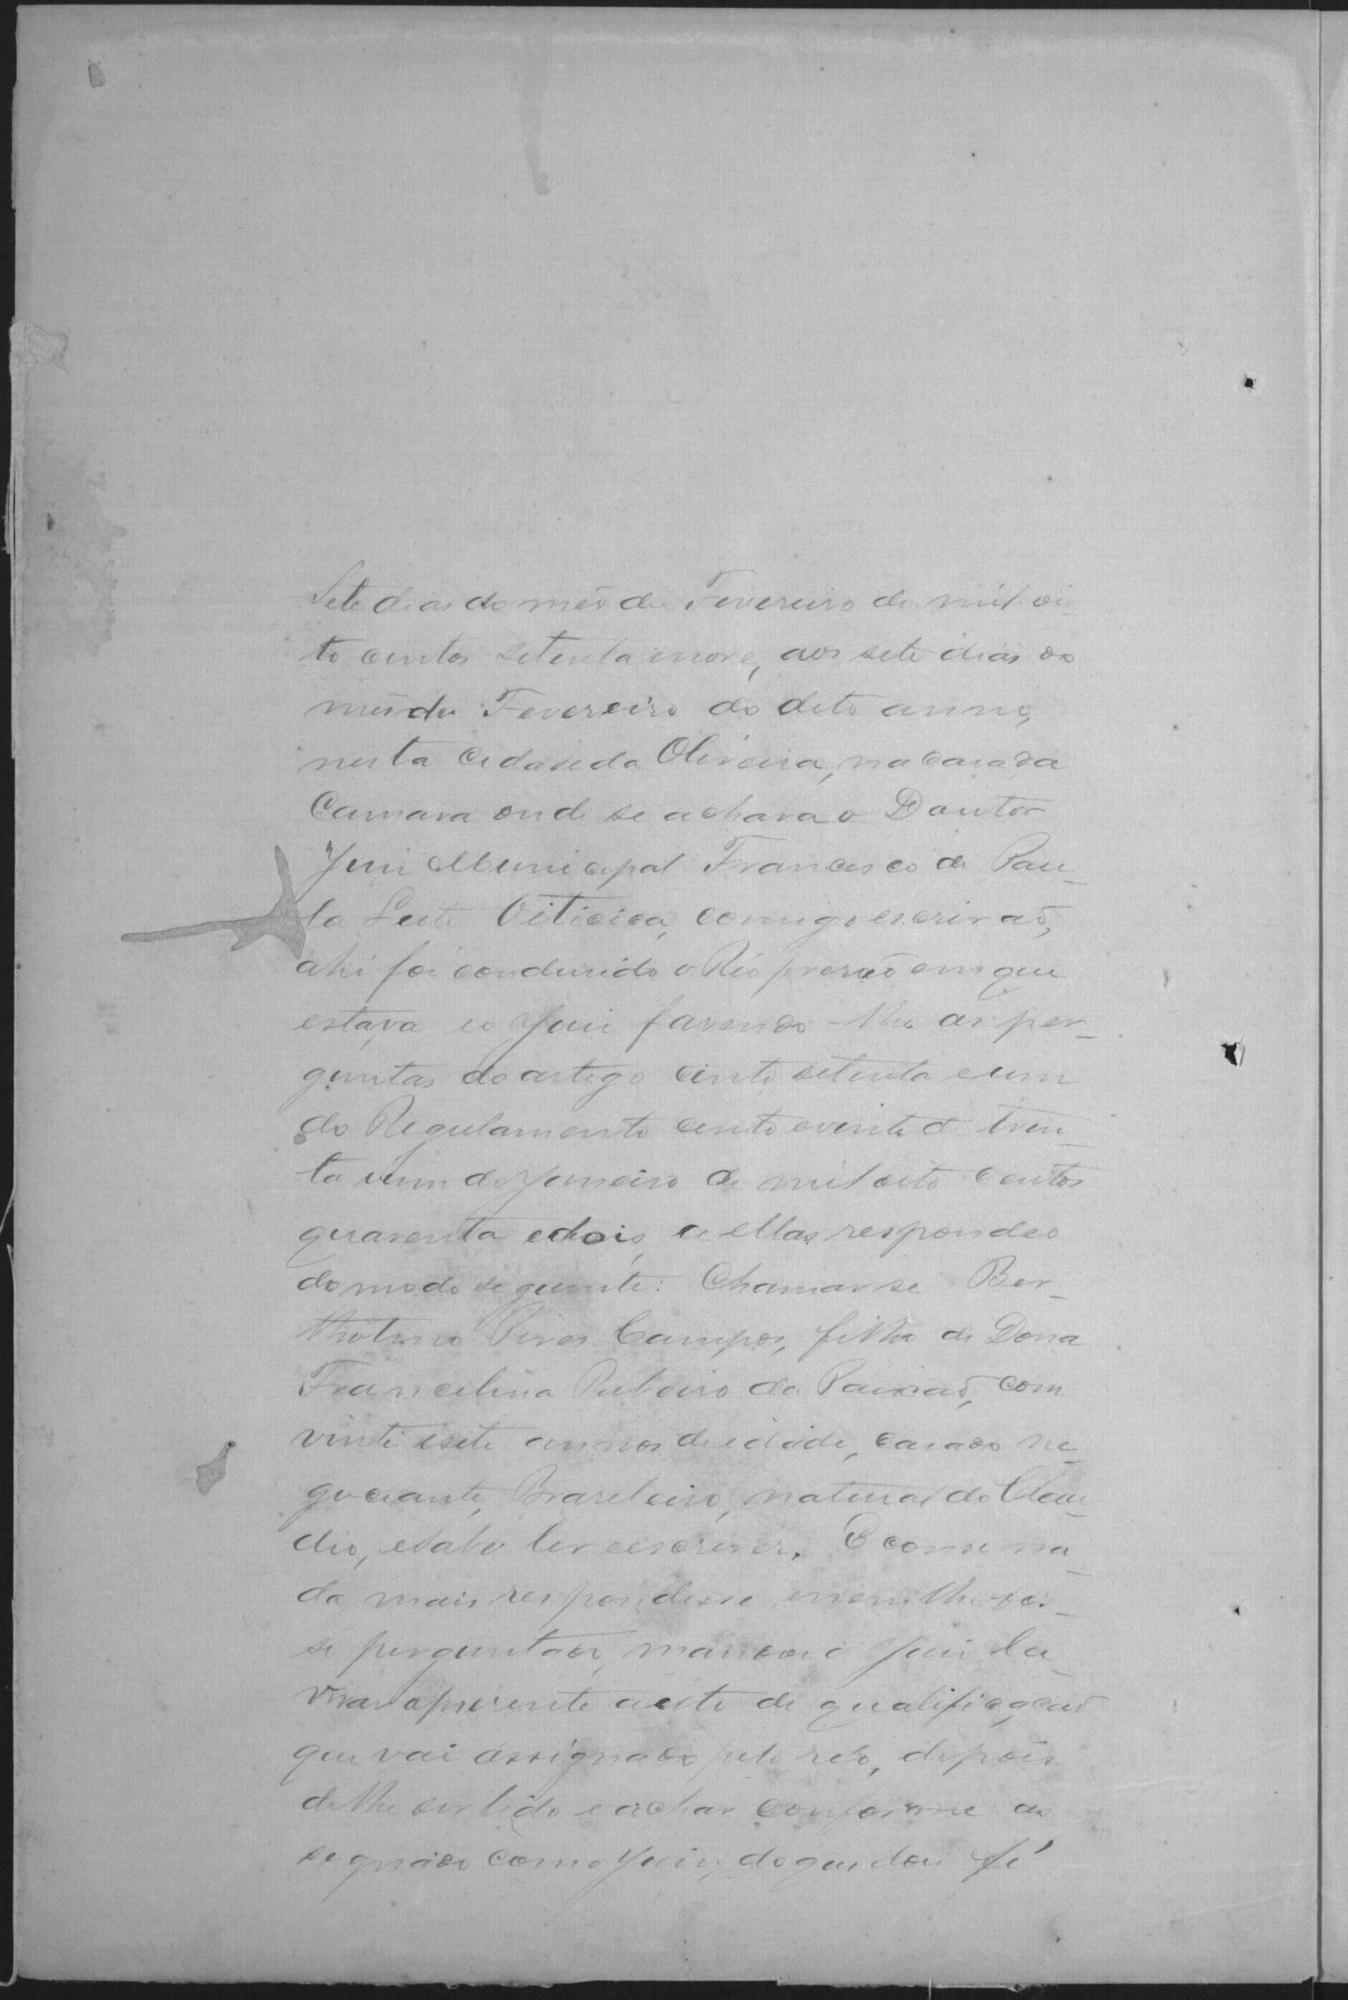 Sete dias do mês de Fevereiro de mil oi
to centos setenta e nove, aos sete dias do
mês de Fevereiro do dito anno,
nesta cidade da Oliveira, na casa da
Camara onde se achava o Doutor
Juiz Municipal Francisco de Pau_
la Leite Oiticica, comigo escrivaõ,
ahi foi condusido o Réo presaõ em que
estava e o Juiz fazendo-lhe as per_
guntas do artigo cento setenta e um
do Regulamento cento e vinte de trin_
ta e um de Janeiro de mil oito centos
quarenta e dois, a ellas respondeo
do modo seguinte: Chamar se Ber_
tholino Pires Campos, filho de Dona
Francelina Ribeiro da Paixaõ, com
vinte e sete annos de idade, casado ne_
gociante, Brazileiro, natural do Clau_
dio, e sabe ler e escrever. E como na_
da mais respondesse e nem lhe fos_
se perguntado, mandou o Juiz la_
vrar o presente auto de qualificaçaõ
que vai assignado pelo réo, depois
de lhe ser lido e achar conforme as
signado com o Juiz, do que dou fé